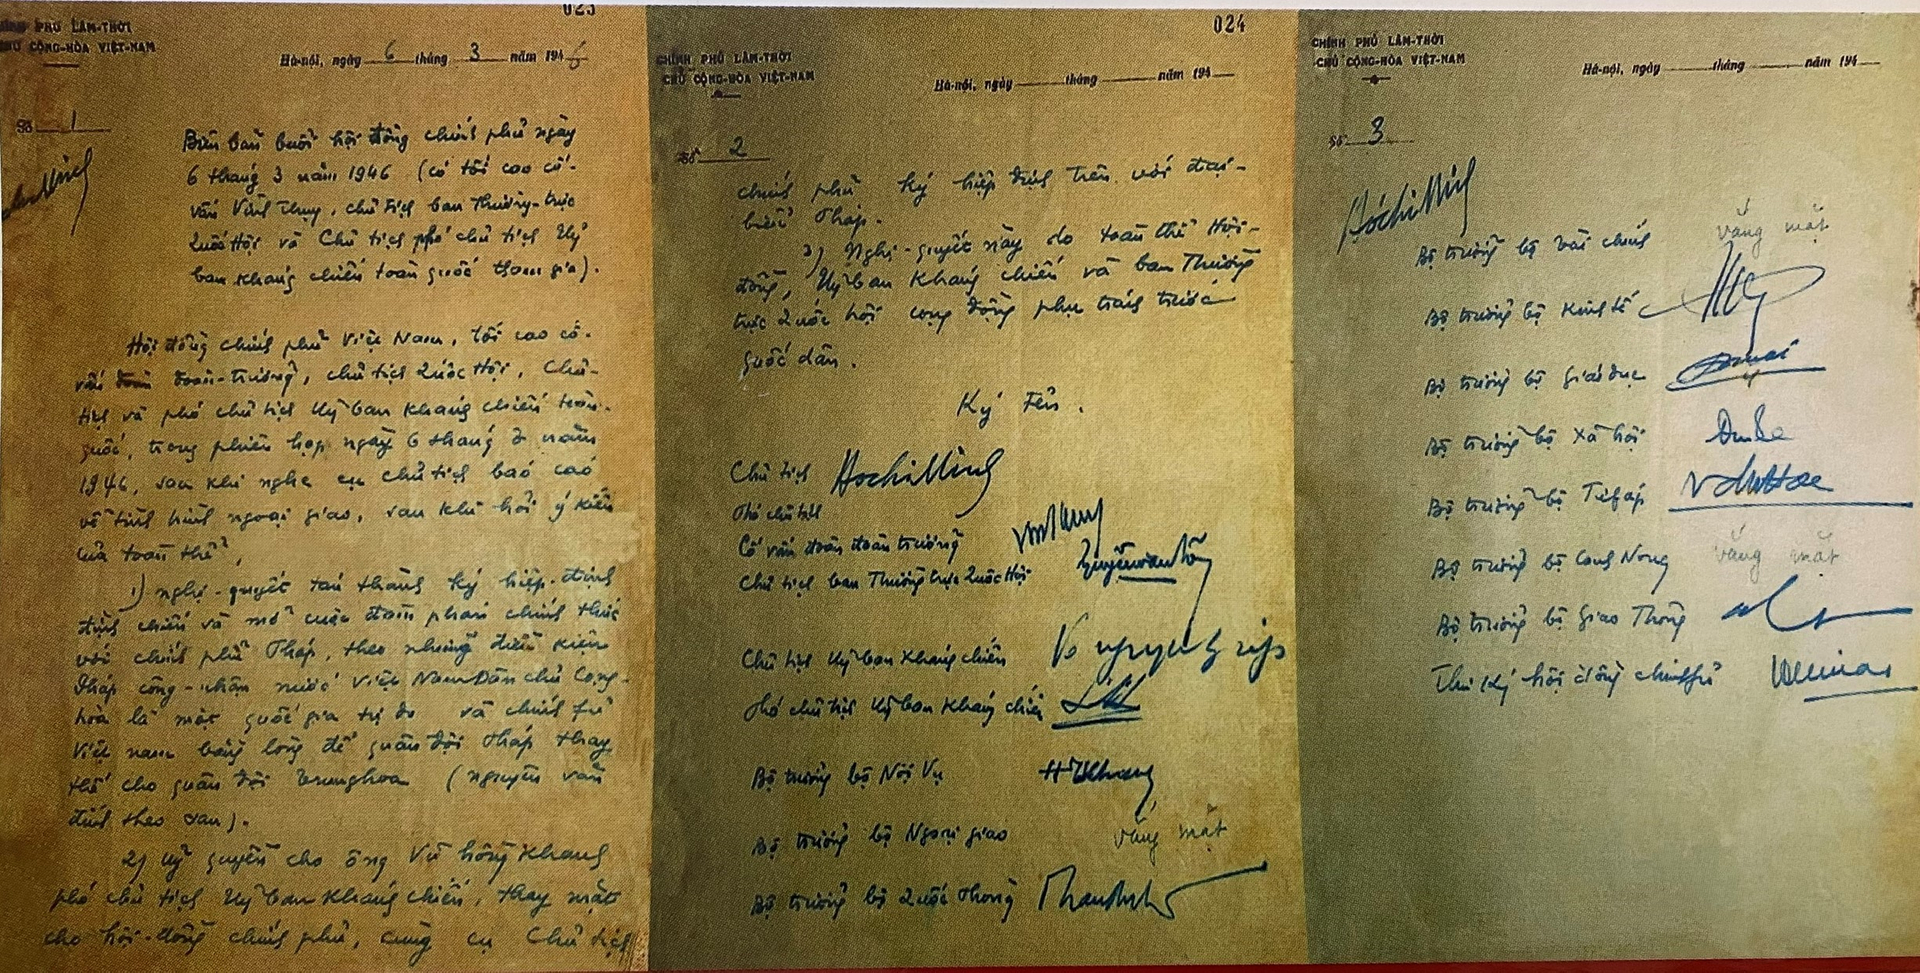 023
PHỦ LÂM-THỜI
CỘNG-HÒA VIỆT-NAM
Hà-nội, ngày 6 tháng 3 năm 1946
Số 1
Biên bản buổi hội đồng chính phủ ngày
6 tháng 3 năm 1946 (có tối cao cố-
vấn Vĩnh Thụy, chủ tịch ban thường-trực
Quốc Hội và Chủ tịch phó chủ tịch Uỷ
ban kháng chiến toàn quốc tham gia).
Hội đồng chính phủ Việt Nam, tối cao cố-
vấn đoàn đoàn-trưởng, chủ tịch Quốc Hội, Chủ-
tịch và phó chủ tịch Uỷ ban kháng chiến toàn-
quốc, trong phiên họp ngày 6 tháng 3 năm
1946, sau khi nghe cụ chủ tịch báo cáo
về tình hình ngoại giao, sau khi hỏi ý kiến
của toàn thể,
1) nghị-quyết tán thành ký hiệp-định
đình chiến và mở cuộc đàm phán chính thức
với chính phủ Pháp, theo những điều kiện
Pháp công-nhận nước Việt Nam Dân chủ Cộng-
hòa là một quốc gia tự do và chính phủ
Việt nam bằng lòng để quân đội Pháp thay
thế cho quân đội Trung hoa (nguyên văn
đính theo sau).
2) uỷ quyền cho ông Vũ hồng Khanh
phó chủ tịch Uỷ ban kháng chiến, thay mặt
cho hội-đồng chính phủ, cùng cụ Chủ tịch
024
CHÍNH PHỦ LÂM-THỜI
CHỦ CỘNG-HÒA VIỆT-NAM
Hà-nội, ngày tháng năm 194
Số 2
chính phủ ký hiệp định trên với đại-
biểu Pháp.
3) Nghị-quyết này do toàn thể Hội-
đồng, Uỷ ban Kháng chiến và ban Thường
trực Quốc hội cộng đồng phụ trách trước
quốc dân.
Ký tên.
Chủ tịch Hochiminh
Phó chủ tịch
Cố vấn đoàn đoàn trưởng
Chủ tịch ban Thường trực Quốc Hội Nguyễn văn Tố
Chủ tịch Uỷ ban Kháng chiến Vo nguyen giap
Phó chủ tịch Uỷ ban Kháng chiến
Bộ trưởng bộ Nội Vụ
Bộ trưởng bộ Ngoại giao vắng mặt
Bộ trưởng bộ Quốc Phòng
CHÍNH PHỦ LÂM-THỜI
CHỦ CỘNG-HÒA VIỆT-NAM
Hà-nội, ngày tháng năm 194
Số 3
Hochiminh
Bộ trưởng bộ tài chính vắng mặt
Bộ trưởng bộ Kinh tế
Bộ trưởng bộ Giáo dục
Bộ trưởng bộ Xã hội
Bộ trưởng bộ Tư pháp
Bộ trưởng bộ Canh Nông vắng mặt
Bộ trưởng bộ Giao Thông
Thư ký hội đồng chính phủ